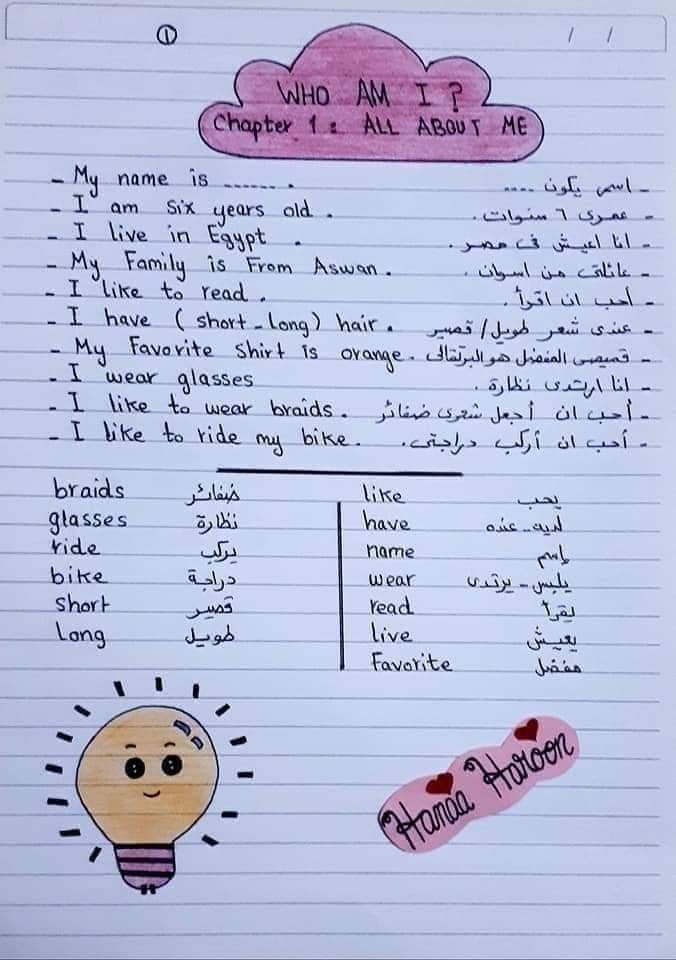 ①
/ /
WHO AM I ?
Chapter 1 : ALL ABOUT ME
- My name is ....... . - اسمى يكون ....
- I am Six years old . - عمرى ٦ سنوات .
- I live in Egypt . - انا اعيش فى مصر .
- My Family is From Aswan . - عائلتى من اسوان .
- I like to read . - أحب ان اقرأ .
- I have ( short - long ) hair . - عندى شعر طويل / قصير
- My Favorite Shirt is orange . - قميصى المفضل هو البرتقالى
- I wear glasses - انا ارتدى نظارة .
- I like to wear braids . - أحب ان أجعل شعرى ضفائر
- I like to ride my bike . - أحب ان أركب دراجتى .
braids ضفائر
glasses نظارة
ride يركب
bike دراجة
short قصير
Long طويل
like يحب
have لديه - عنده
name إسم
wear يلبس - يرتدى
read يقرأ
live يعيش
Favorite مفضل
Hanaa Haroon